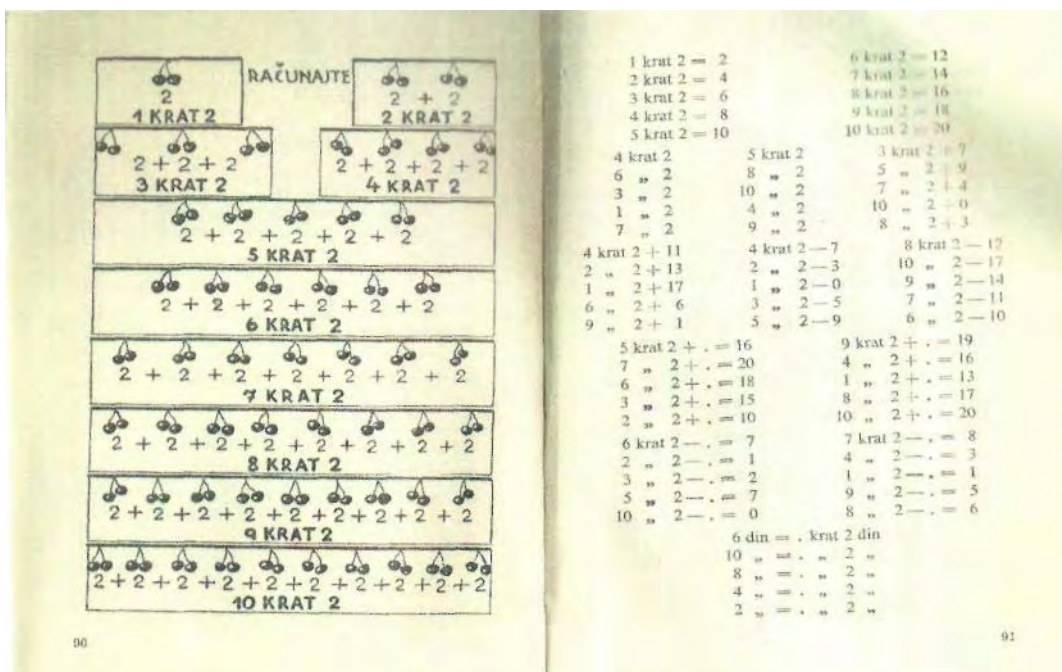 RAČUNAJTE
2
1 KRAT 2
2 + 2
2 KRAT 2
2 + 2 + 2
3 KRAT 2
2 + 2 + 2 + 2
4 KRAT 2
2 + 2 + 2 + 2 + 2
5 KRAT 2
2 + 2 + 2 + 2 + 2 + 2
6 KRAT 2
2 + 2 + 2 + 2 + 2 + 2 + 2
7 KRAT 2
2 + 2 + 2 + 2 + 2 + 2 + 2 + 2
8 KRAT 2
2 + 2 + 2 + 2 + 2 + 2 + 2 + 2 + 2
9 KRAT 2
2 + 2 + 2 + 2 + 2 + 2 + 2 + 2 + 2 + 2
10 KRAT 2
90
1 krat 2 = 2
2 krat 2 = 4
3 krat 2 = 6
4 krat 2 = 8
5 krat 2 = 10
6 krat 2 = 12
7 krat 2 = 14
8 krat 2 = 16
9 krat 2 = 18
10 krat 2 = 20
4 krat 2
6 „ 2
3 „ 2
1 „ 2
7 „ 2
5 krat 2
8 „ 2
10 „ 2
4 „ 2
9 „ 2
3 krat 2 + 7
5 „ 2 + 9
7 „ 2 + 4
10 „ 2 + 0
8 „ 2 + 3
4 krat 2 + 11
2 „ 2 + 13
1 „ 2 + 17
6 „ 2 + 6
9 „ 2 + 1
4 krat 2 — 7
2 „ 2 — 3
1 „ 2 — 0
3 „ 2 — 5
5 „ 2 — 9
8 krat 2 — 12
10 „ 2 — 17
9 „ 2 — 14
7 „ 2 — 11
6 „ 2 — 10
5 krat 2 + . = 16
7 „ 2 + . = 20
6 „ 2 + . = 18
3 „ 2 + . = 15
2 „ 2 + . = 10
9 krat 2 + . = 19
4 „ 2 + . = 16
1 „ 2 + . = 13
8 „ 2 + . = 17
10 „ 2 + . = 20
6 krat 2 — . = 7
2 „ 2 — . = 1
3 „ 2 — . = 2
5 „ 2 — . = 7
10 „ 2 — . = 0
7 krat 2 — . = 8
4 „ 2 — . = 3
1 „ 2 — . = 1
9 „ 2 — . = 5
8 „ 2 — . = 6
6 din = . krat 2 din
10 „ = . „ 2 „
8 „ = . „ 2 „
4 „ = . „ 2 „
2 „ = . „ 2 „
91